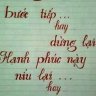 bước tiếp ...
hay
dừng lại
Hạnh phúc này
níu lại ...
hay